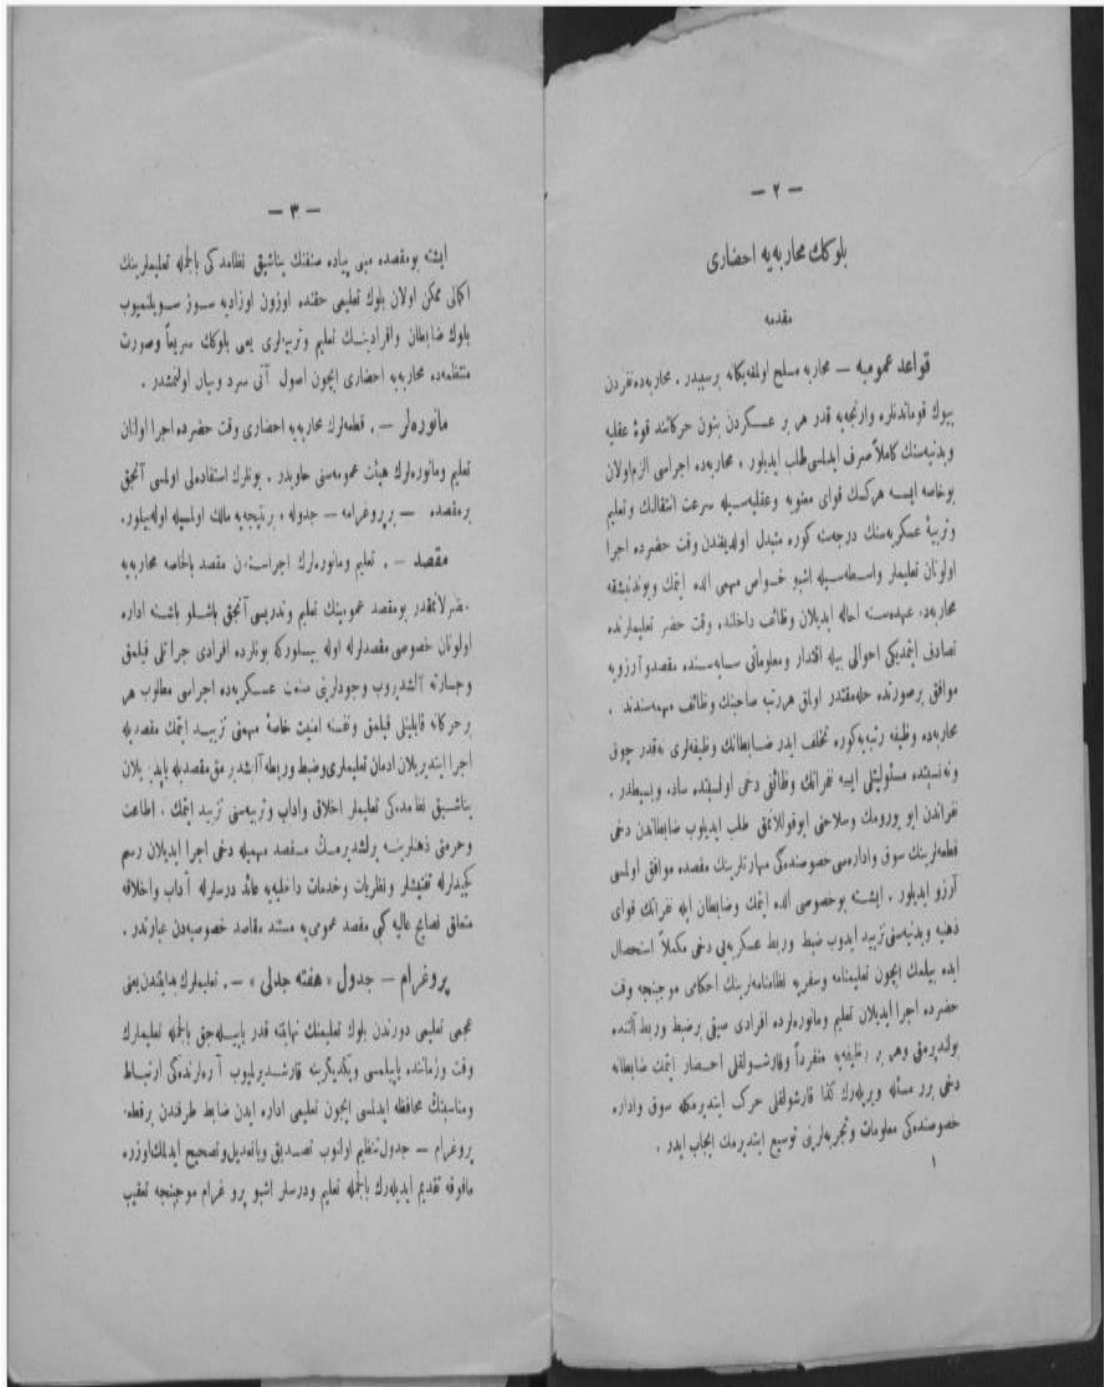 — ٢ —
بلوكك محاربه‌يه احضاری
مقدمه
قواعد عموميه — محاربه مسلح اولمغه يكانه برسببدر . محاربه‌ده نفردن
بيوك قوماندانلره وارنجه‌يه قدر هر بر عسكردن بتون حركاتنده قوهٔ عقليه
وبدنيه‌سنك كاملاً صرف ايدلمسی طلب ايديلور . محاربه‌ده اجراسی الزم اولان
بوخاصه ايسه هركسك قوای معنويه وعقليه‌سيله سرعت انتقالك وتعليم
وتربيهٔ عسكريه‌سنك درجه‌سنه كوره متبدل اولديغندن وقت حضرده اجرا
اولونان تعليملر واسطه‌سيله اشبو خواص مهمی الده ايتمك وبوندنبشقه
محاربه‌ده عهده‌سنه احاله ايديلان وظائف داخلنده وقت حضر تعليملرنده
تصادف ايتمديكی احوالی بيله اقتدار ومعلوماتی سايه‌سنده مقصد وآرزويه
موافق برصورتده حله مقتدر اولمق هررتبه صاحبنك وظائف مهمه‌سندند .
محاربه‌ده وظيفه رتبه‌يه كوره تخلف ايدر ضابطانك وظيفه‌لری نه‌قدر چوق
ونه نسبتده مسئوليتلی ايسه نفراتك وظائفی دخی اولنسبتده ساده وبسيطدر .
نفراتدن ايو يورومك وسلاحنی ايوقوللانمق طلب ايديلوب ضابطاندن دخی
قطعه‌لرينك سوق واداره‌سی خصوصنده‌كی مهارتلرينك مقصده موافق اولمسی
آرزو ايديلور . ايشته بوخصوصی الده ايتمك وضابطان ايله نفراتك قوای
ذهنيه وبدنيه‌سنی تزييد ايدوب ضبط وربط عسكريه‌يی دخی مكملاً استحصال
ايده بيلمك ايچون تعليمنامه وسفريه نظامنامه‌لرينك احكامی موجبنجه وقت
حضرده اجرا ايديلان تعليم ومانوره‌لرده افرادی صيقی برضبط وربط آلتنده
بولنديرمق وهر بر وظيفه‌يه منفرداً وقارشولقلی احضار ايتمك ضابطانه
دخی برر مسئله ويريله‌رك كذا قارشولقلی حركت ايتديرمكله سوق واداره
خصوصنده‌كی معلومات وتجربه‌لرينی توسيع ايتديرمك ايجاب ايدر .
١
— ٣ —
ايشته بومقصده مبنی پياده صنفنك يناشيق نظامده‌كی بالجمله تعليملرينك
اكمالی ممكن اولان بلوك تعليمی حقنده اوزون اوزاديه سوز سويلنميوب
بلوك ضابطان وافرادينك تعليم وتربيه‌لری يعنی بلوكك سريعاً وصورت
منتظمه‌ده محاربه‌يه احضاری ايچون اصول آتی سرد وبيان اولنمشدر .
مانوره‌لر — . قطعه‌لرك محاربه‌يه احضاری وقت حضرده اجرا اولنان
تعليم ومانوره‌لرك هيئت عموميه‌سنی حاويدر . بونلرك استفاده‌لی اولمسی آنجق
برمقصده — برپروغرامه — جدوله ، برنتيجه‌يه مالك اولمسيله اوله‌بيلور.
مقصد — . تعليم ومانوره‌لرك اجراسندن مقصد بالخاصه محاربه‌يه
حاضرلانمقدر بومقصد عمومينك تعليم وتدريسی آنجق باشلو باشنه اداره
اولونان خصوصی مقصدلرله اوله بيلوركه بونلرده افرادی جرأتلی قيلمق
وجسارته آلشديروب وجودلرينی صنعت عسكريه‌ده اجراسی مطلوب هر
برحركاته قابليتلی قيلمق ونفسنه امنيت خاصهٔ مهمنی تزييد ايتمك مقصديله
اجرا ايتديريلان ادمان تعليملری وضبط وربطه آلشديرمق مقصديله ياپديريلان
يناشيق نظامده‌كی تعليملر اخلاق واداب وتربيه‌سنی تزييد ايتمك ، اطاعت
وحرمتی ذهنلرينه يرلشديرمك مقصد مهميله دخی اجرا ايديلان رسم
كچيدلرله تفتيشلر ونظريات وخدمات داخليه‌يه عائد درسلرله آداب واخلاقه
متعلق نصايح عاليه كبی مقصد عمومی‌يه مستند مقاصد خصوصيه‌دن عبارتدر .
پروغرام — جدول «هفته جدلی» — . تعليملرك بدايتندن يعنی
عجمی تعليمی دورندن بلوك تعليمنك نهايتنه قدر ياپيله‌جق بالجمله تعليملرك
وقت وزماننده ياپيلمسی ويكديگرينه قارشديرلميوب آره‌لرنده‌كی ارتباط
ومناسبتك محافظه ايدلمسی ايچون تعليمی اداره ايدن ضابط طرفندن برقطعه
پروغرام — جدول تنظيم اولنوب تصديق وياتعديل وتصحيح ايدلمك اوزره
مافوقه تقديم ايديله‌رك بالجمله تعليم ودرسلر اشبو پروغرام موجبنجه تعقيب